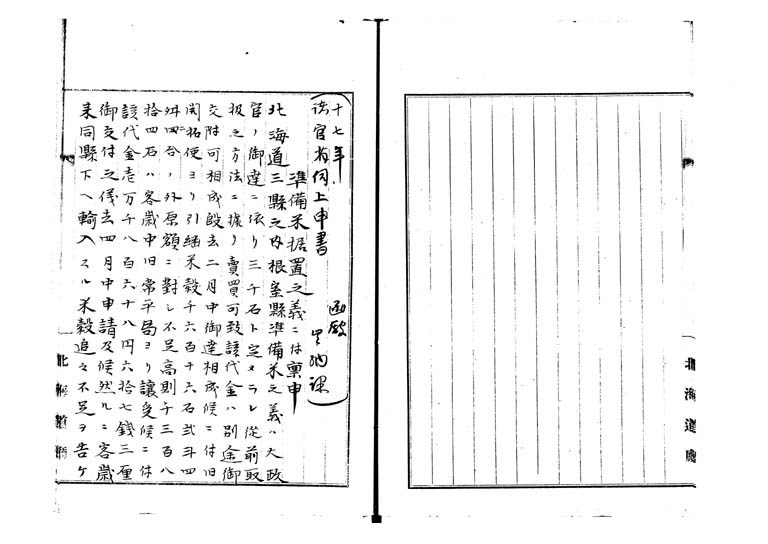 十七年
諸官省伺上申書
函館
出納課
準備米据置之義ニ付稟申
北海道三縣之内根室縣準備米之義ハ大政
官ノ御達ニ依リ三千石ト定メラレ従前取
扱之方法ニ據リ賣買可致該代金ハ別途御
交附可相成段去二月中御達相成候ニ付旧
開拓使ヨリ引継米穀千六百十六石弐斗四
舛四合ノ外原額ニ對シ不足高則千三百八
拾四石ハ客歳中旧常平局ヨリ讓受候ニ付
該代金壱万千八百六十八円六拾七銭三厘
御支付之儀去四月中申請及候然ルニ客歳
来同縣下ヘ輸入スル米穀追々不足ヲ告ケ
北海道廳
北海道廳